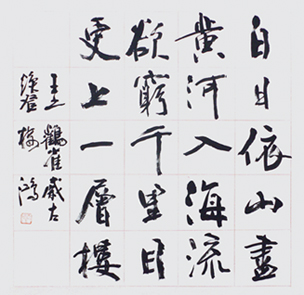 白日依山盡
黄河入海流
欲窮千里目
更上一層樓
王之渙登
鸛雀樓